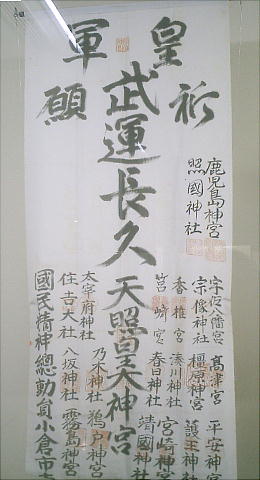 皇軍
祈願
武運長久
天照皇大神宮
鹿児島神宮
照國神社
宇佐八幡宮 高津宮 平安神宮
宗像神社 橿原神宮 護王神宮
香椎宮 湊川神社 宮崎神宮
筥崎宮 春日神社 靖國神宮
太宰府神社 乃木神社 鵜戸神宮
住吉大社 八坂神社 霧島神宮
國民精神總動員小倉市